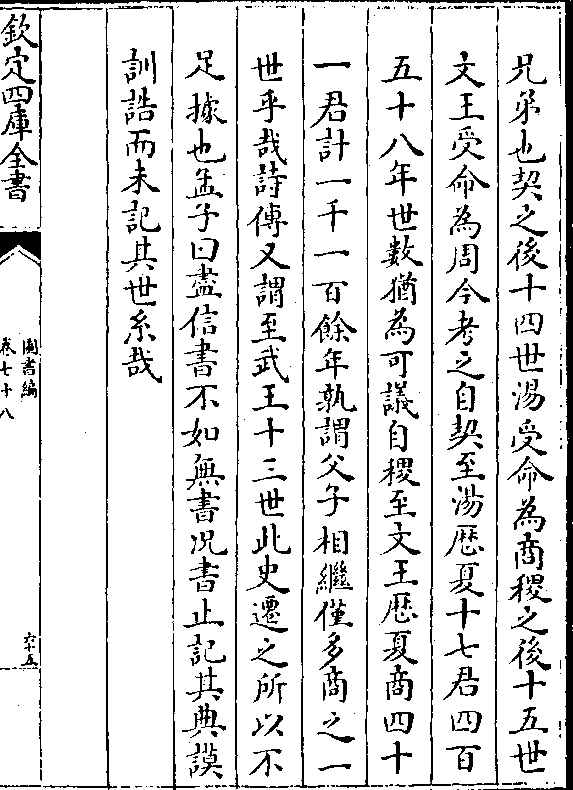 兄弟也契之後十四世湯受命為商稷之後十五世
文王受命為周今考之自契至湯歴夏十七君四百
五十八年世數猶為可議自稷至文王歴夏商四十
一君計一千一百餘年孰謂父子相繼僅多商之一
世乎哉詩傳又謂至武王十三世此史遷之所以不
足據也孟子曰盡信書不如無書况書止記其典謨
訓誥而未記其世系哉
欽定四庫全書
圖書編
卷七十八
六十五